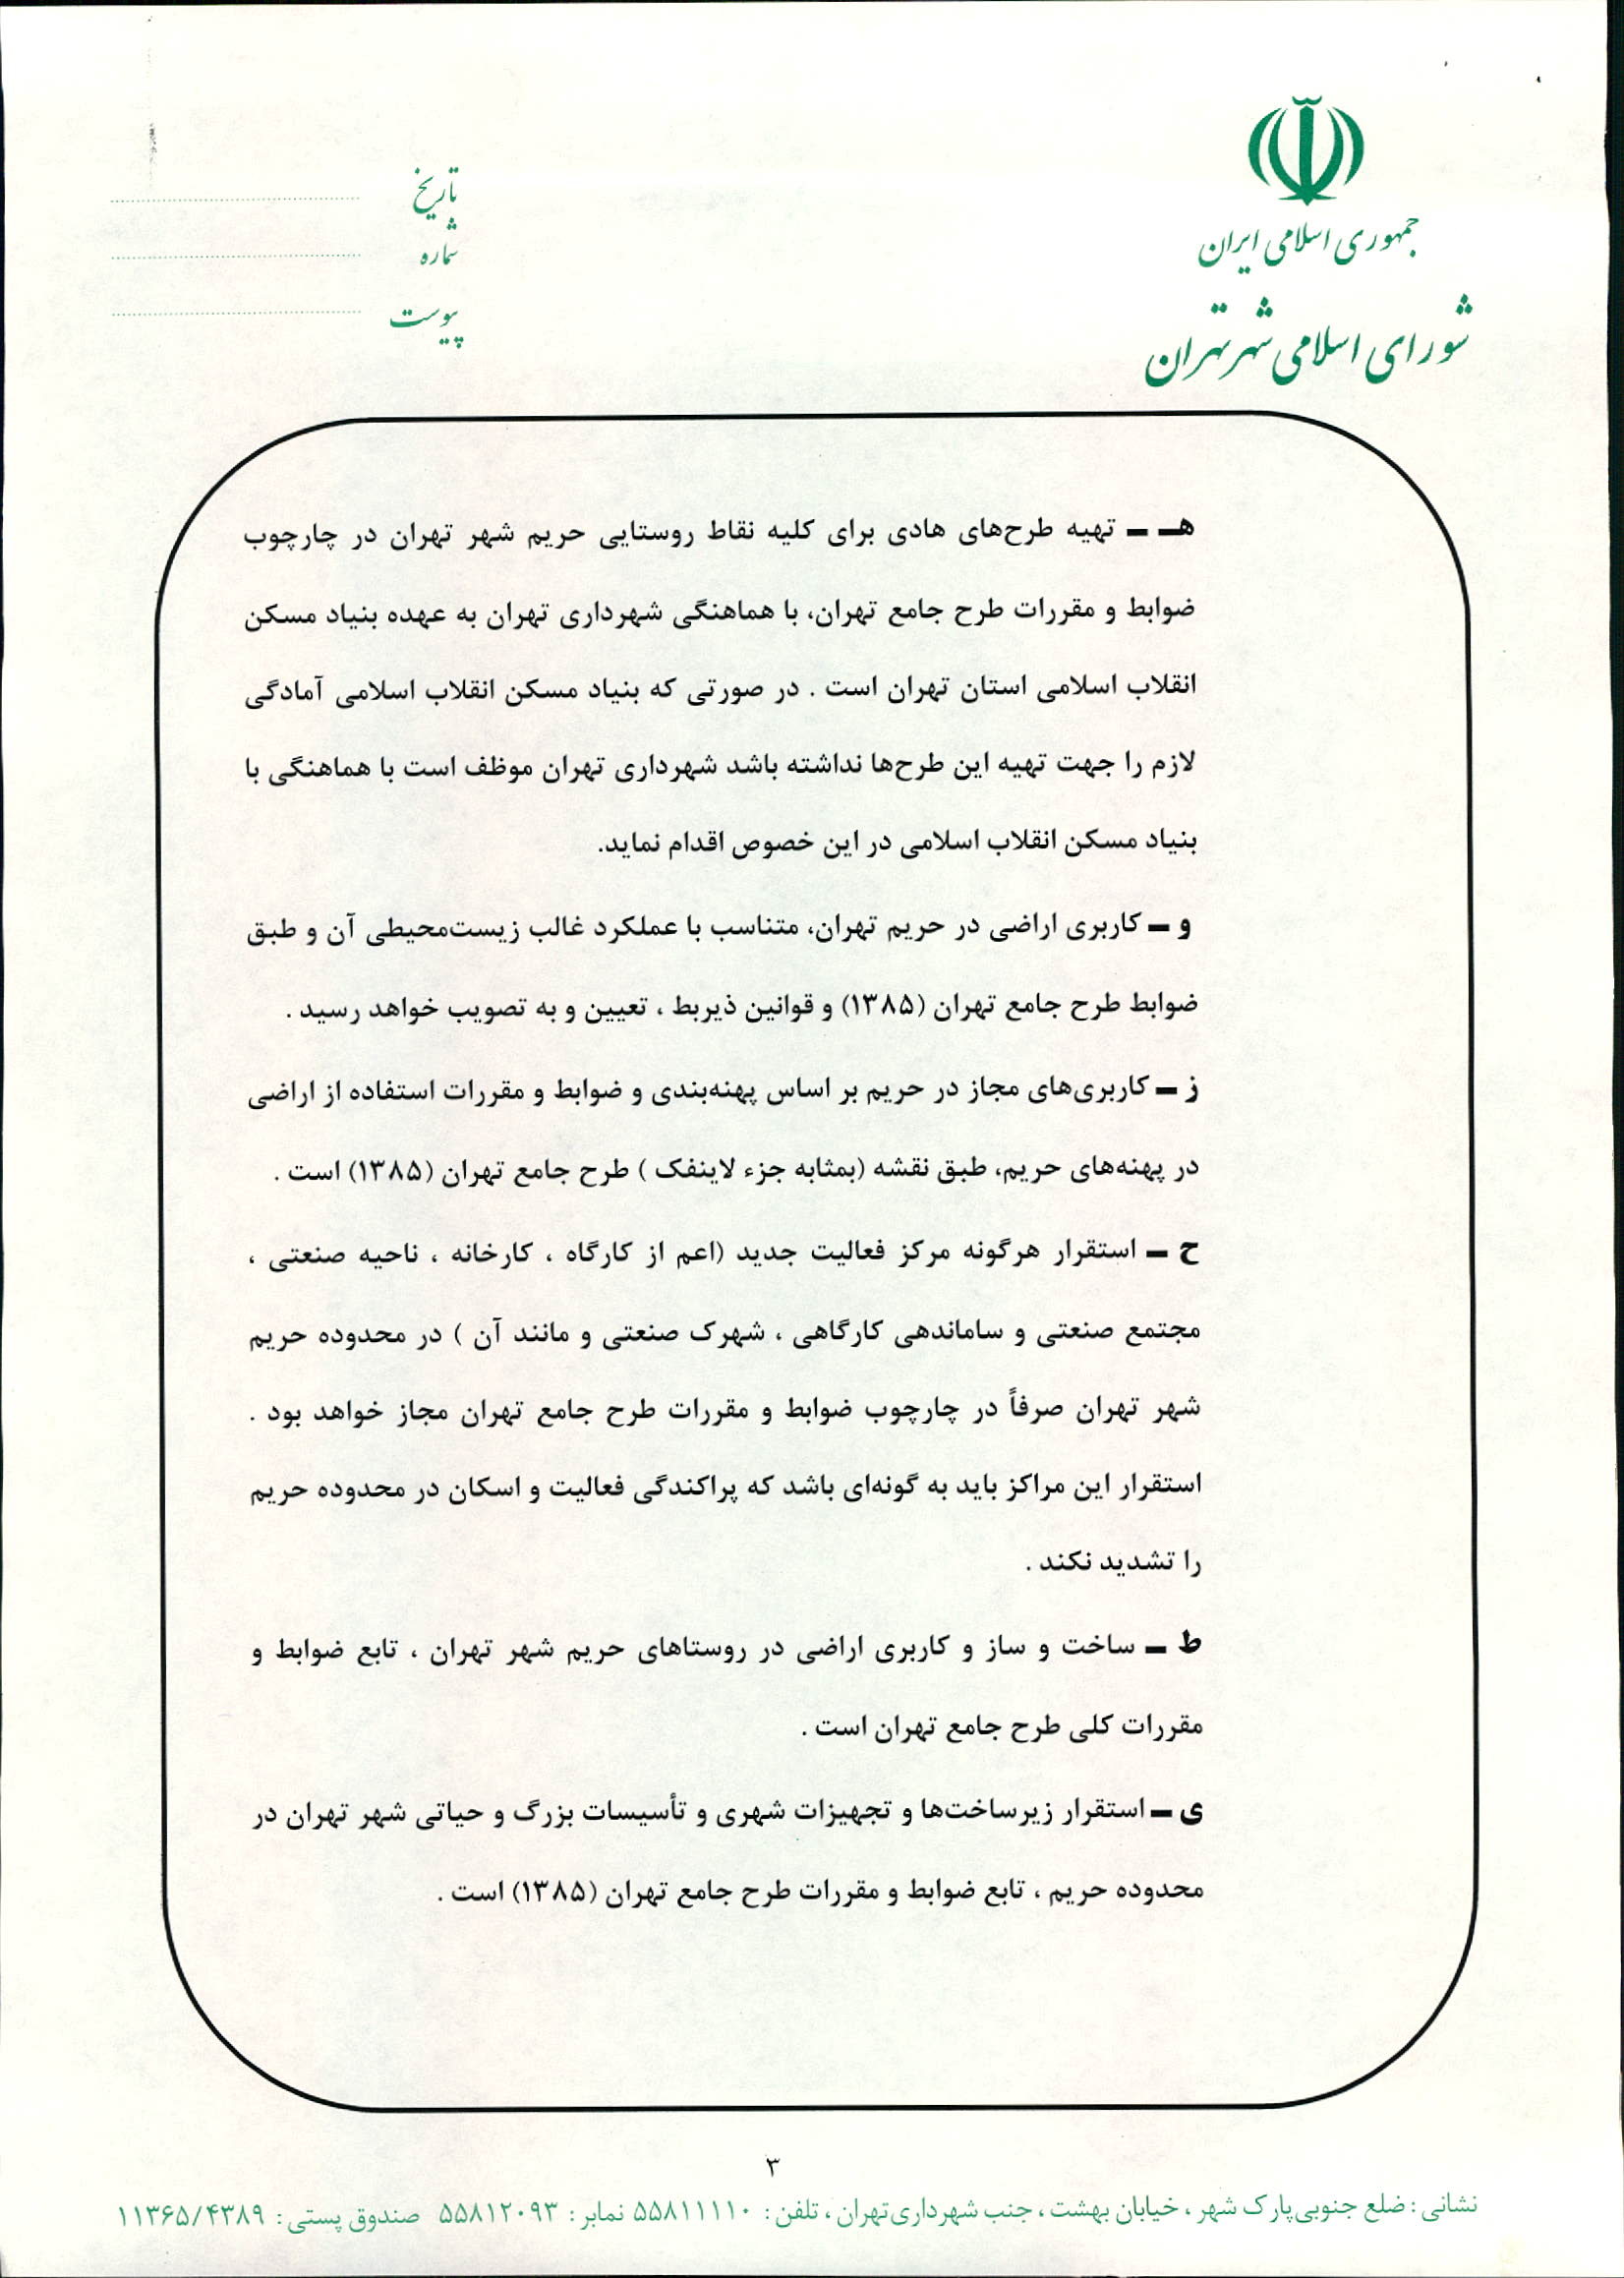 جمهوری اسلامی ایران
شورای اسلامی شهر تهران
تاریخ
شماره
پیوست
هـ ـ تهیه طرح‌های هادی برای کلیه نقاط روستایی حریم شهر تهران در چارچوب
ضوابط و مقررات طرح جامع تهران، با هماهنگی شهرداری تهران به عهده بنیاد مسکن
انقلاب اسلامی استان تهران است . در صورتی که بنیاد مسکن انقلاب اسلامی آمادگی
لازم را جهت تهیه این طرح‌ها نداشته باشد شهرداری تهران موظف است با هماهنگی با
بنیاد مسکن انقلاب اسلامی در این خصوص اقدام نماید.
و ـ کاربری اراضی در حریم تهران، متناسب با عملکرد غالب زیست‌محیطی آن و طبق
ضوابط طرح جامع تهران (۱۳۸۵) و قوانین ذیربط ، تعیین و به تصویب خواهد رسید .
ز ـ کاربری‌های مجاز در حریم بر اساس پهنه‌بندی و ضوابط و مقررات استفاده از اراضی
در پهنه‌های حریم، طبق نقشه (بمثابه جزء لاینفک ) طرح جامع تهران (۱۳۸۵) است .
ح ـ استقرار هرگونه مرکز فعالیت جدید (اعم از کارگاه ، کارخانه ، ناحیه صنعتی ،
مجتمع صنعتی و ساماندهی کارگاهی ، شهرک صنعتی و مانند آن ) در محدوده حریم
شهر تهران صرفاً در چارچوب ضوابط و مقررات طرح جامع تهران مجاز خواهد بود .
استقرار این مراکز باید به گونه‌ای باشد که پراکندگی فعالیت و اسکان در محدوده حریم
را تشدید نکند .
ط ـ ساخت و ساز و کاربری اراضی در روستاهای حریم شهر تهران ، تابع ضوابط و
مقررات کلی طرح جامع تهران است .
ی ـ استقرار زیرساخت‌ها و تجهیزات شهری و تأسیسات بزرگ و حیاتی شهر تهران در
محدوده حریم ، تابع ضوابط و مقررات طرح جامع تهران (۱۳۸۵) است .
۳
نشانی : ضلع جنوبی‌پارک شهر ، خیابان بهشت ، جنب شهرداری‌تهران ، تلفن : ۵۵۸۱۱۱۱۰ نمابر : ۵۵۸۱۲۰۹۳ صندوق پستی : ۱۱۳۶۵/۴۳۸۹